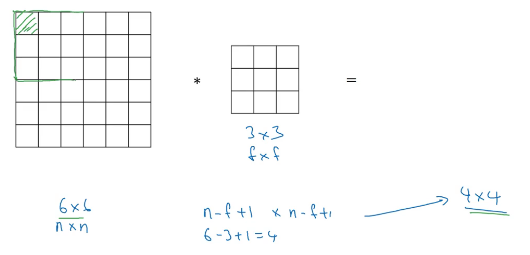 *
=
3 × 3
f × f
6 × 6
n × n
n-f+1 × n-f+1
6-3+1=4
4 × 4